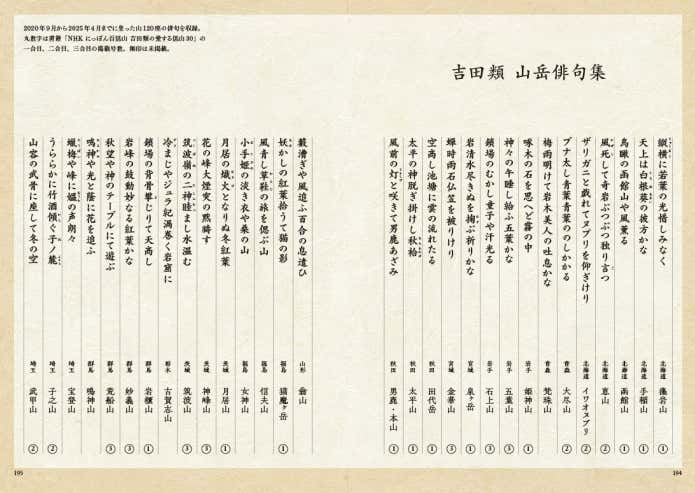 吉田類 山岳俳句集
横に若葉の光惜しみなく 北海道 藻岩山 ①
天上は白根葵の彼方かな 北海道 手稲山 ①
鳥瞰の函館山や風薫る 北海道 函館山 ①
風死して奇岩ぶつぶつ独り言つ 北海道 恵山 ②
ザリガニと戯れてヌプリを仰ぎけり 北海道 イワオヌプリ ②
ブナ太し青葉青葉ののしかかる 青森 大尽山 ②
梅雨明けて岩木美人の吐息かな 青森 梵珠山
啄木の石を思へど霧の中 岩手 姫神山 ①
神々の午睡し給ふ五葉かな 岩手 五葉山 ③
鎖場のむかし童子や汗光る 岩手 石上山 ③
岩清水尽きぬを掬ぶ祈りかな 宮城 泉ヶ岳 ①
蝉時雨石仏笠を被りけり 宮城 金華山 ③
空高し池塘に雲の流れたる 秋田 田代岳 ①
太平の神脱ぎ掛けし秋袷 秋田 太平山 ①
風前の灯と咲きて男鹿あざみ 秋田 男鹿・本山 ①
194
2020年9月から2025年4月までに登った山120座の俳句を収録。
丸数字は書籍「NHK にっぽん百低山 吉田類の愛する低山30」の
一合目、二合目、三合目の掲載号数。無印は未掲載。
藪漕ぎや風追ふ百合の息遣ひ 山形 翁山
妖かしの紅葉拾うて猫の影 福島 猫魔ヶ岳 ①
風青し草鞋の旅を偲ぶ山 福島 信夫山 ①
小手姫の淡き衣や桑の山 福島 女神山
月居の熾火となりぬ冬紅葉 茨城 月居山 ①
花の峰大煙突の黙す 茨城 神峰山 ③
筑波嶺の二神睦まし水温む 茨城 筑波山 ③
冷まじやジュラ紀渦巻く岩窟に 栃木 古賀志山
鎖場の背骨攀じりて天高し 群馬 岩櫃山 ①
岩峰の鼓動妙なる紅葉かな 群馬 妙義山 ①
秋望や神のテーブルにて遊ぶ 群馬 荒船山 ③
鳴神や光と蔭に花を追ふ 群馬 鳴神山
蝋梅や峰に姫の声朗々 埼玉 宝登山
うららかに竹酒傾ぐ子ノ麓 埼玉 子之山 ②
山容の武骨に座して冬の空 埼玉 武甲山 ②
195